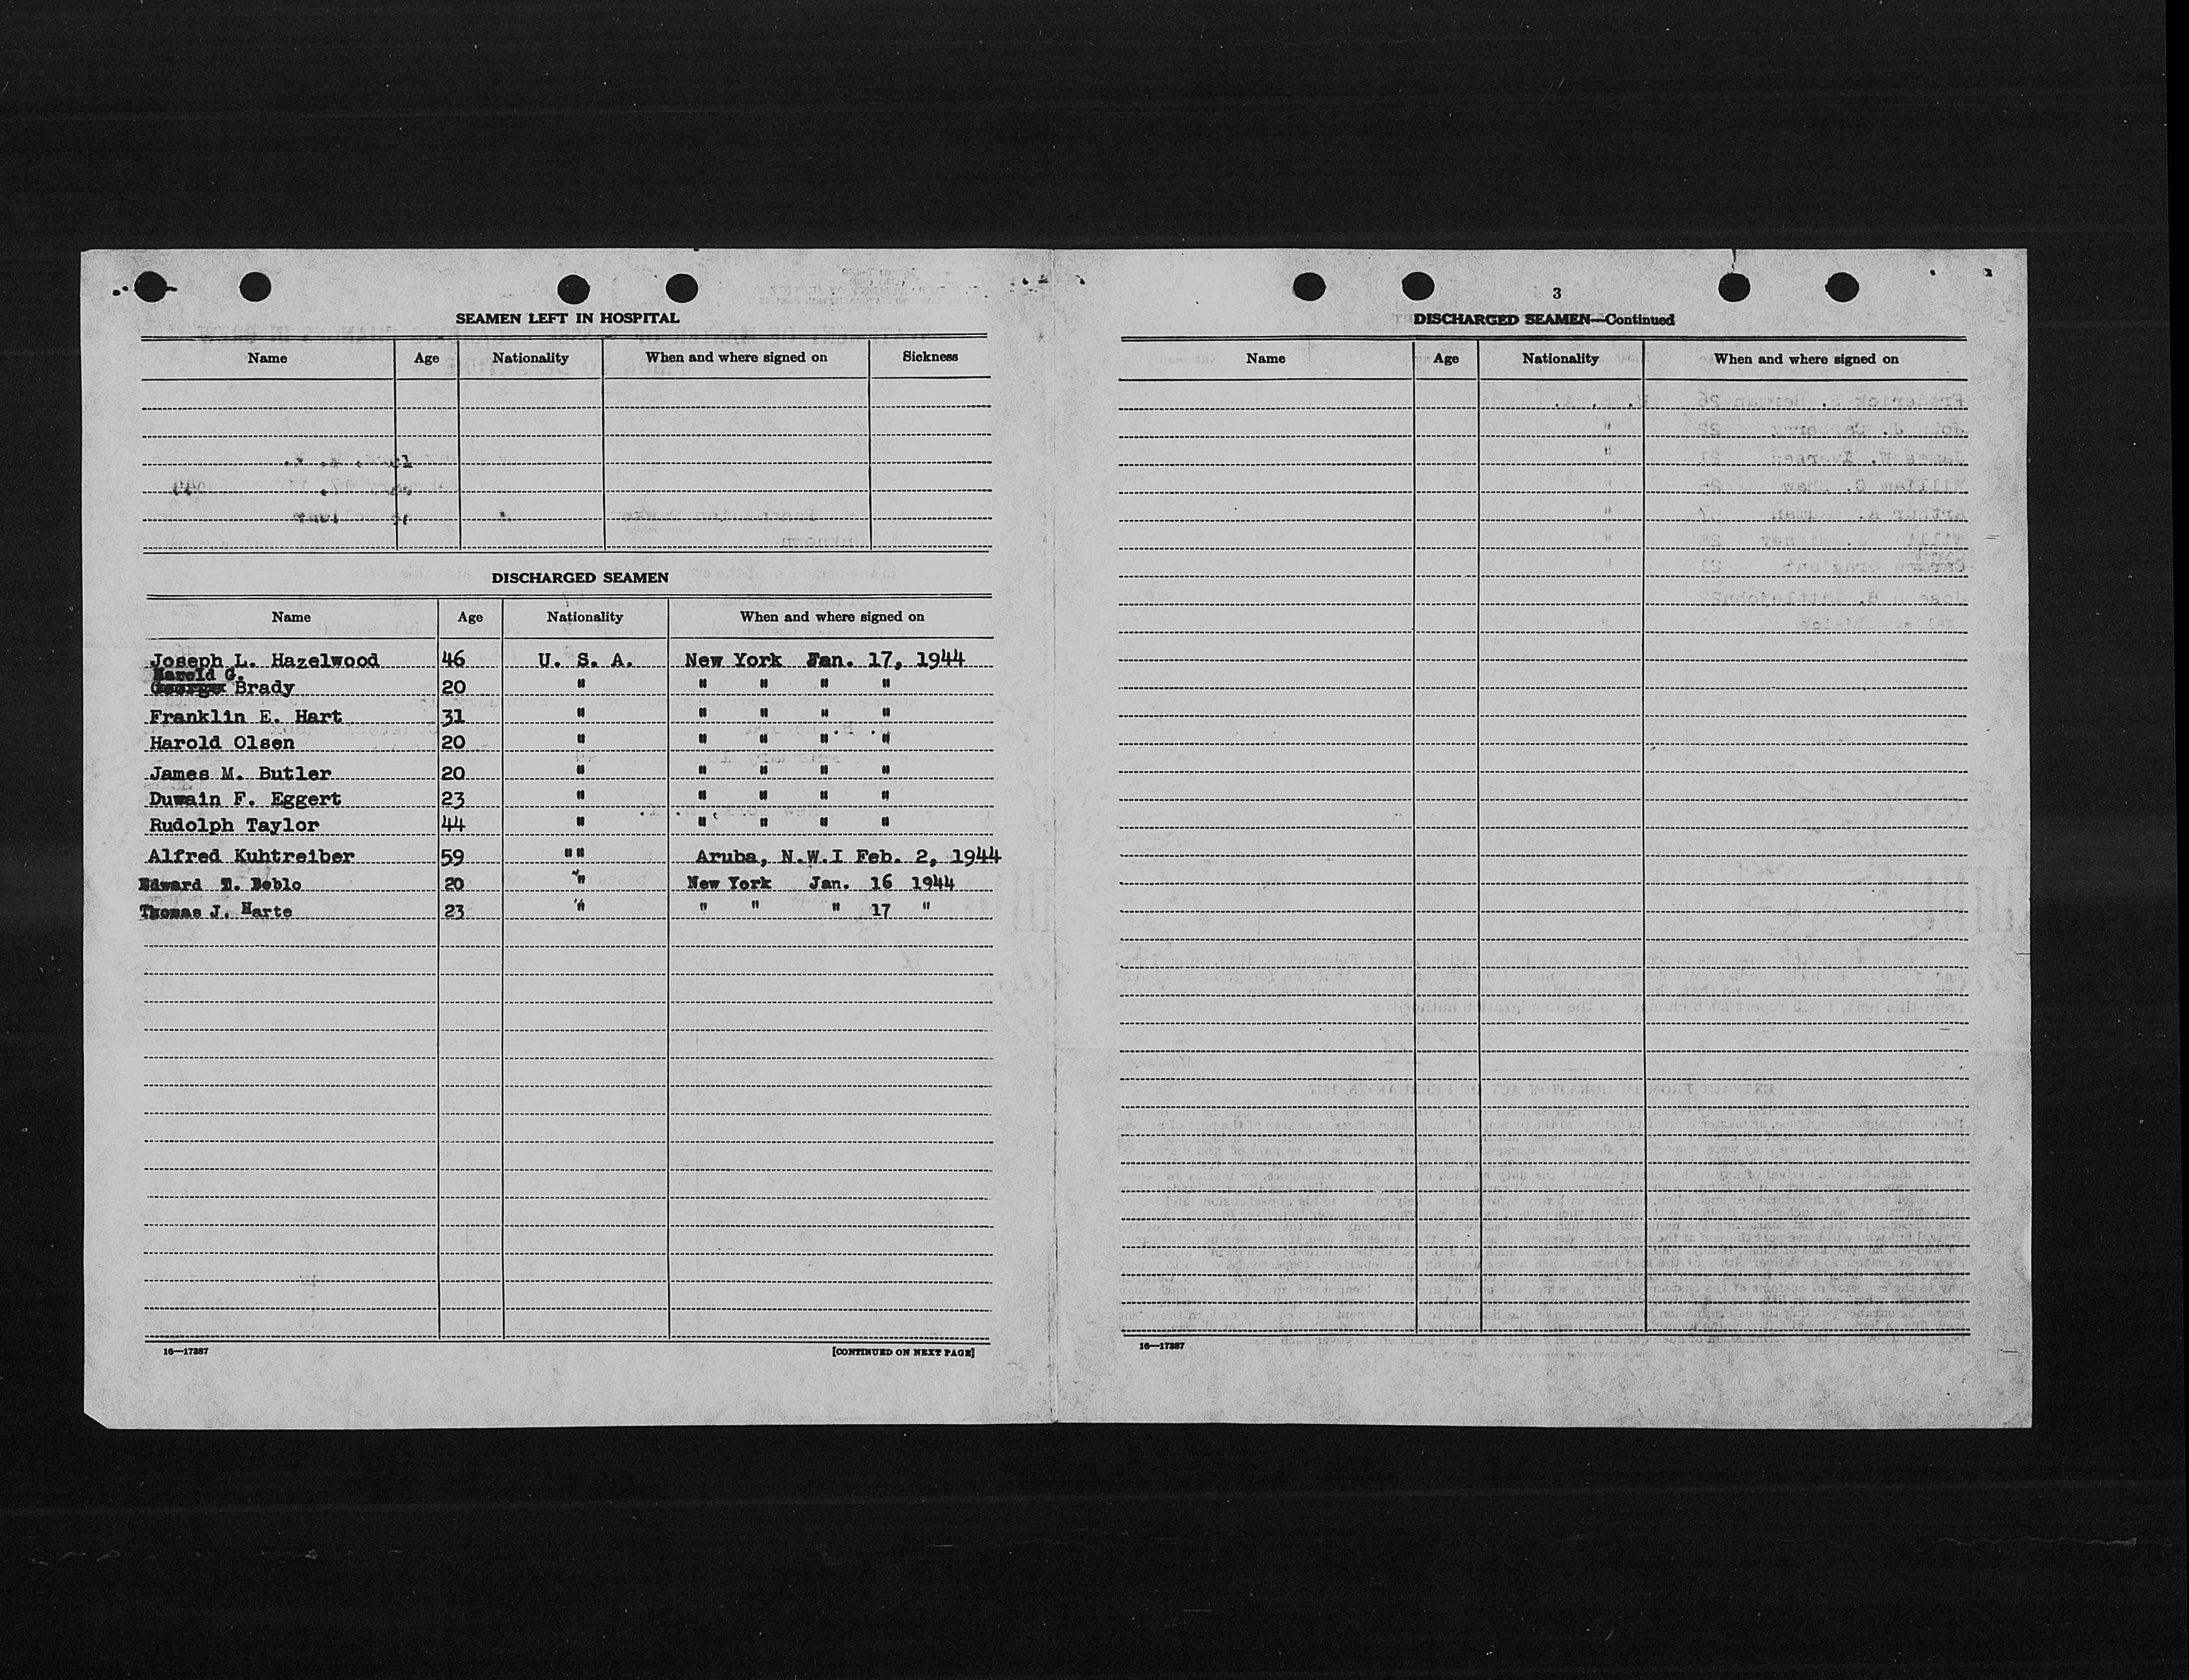 SEAMEN LEFT IN HOSPITAL
Name Age Nationality When and where signed on Sickness
DISCHARGED SEAMEN
Name Age Nationality When and where signed on
Joseph L. Hazelwood 46 U. S. A. New York Jan. 17, 1944
Harold G.
Brady 20 " " " " "
Franklin E. Hart 31 " " " " "
Harold Olsen 20 " " " " "
James M. Butler 20 " " " " "
Duwain F. Eggert 23 " " " " "
Rudolph Taylor 44 " " " " "
Alfred Kuhtreiber 59 "" Aruba, N.W.I Feb. 2, 1944
Edward Deblo 20 " New York Jan. 16 1944
Thomas J. Harte 23 " " " " 17 "
16—17387 [CONTINUED ON NEXT PAGE]
3
DISCHARGED SEAMEN—Continued
Name Age Nationality When and where signed on
16—17387